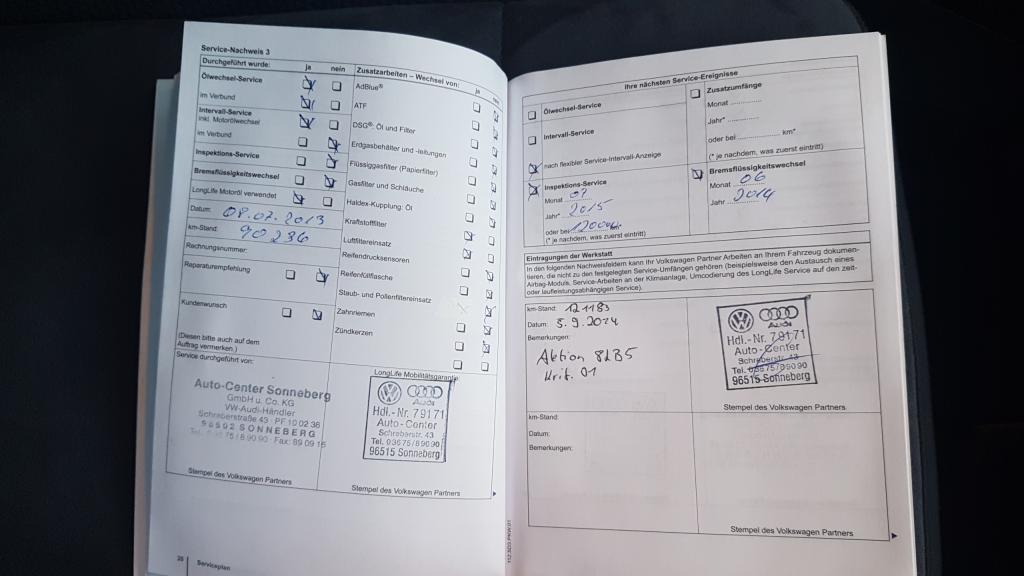 Service-Nachweis 3
Durchgeführt wurde: ja nein
Ölwechsel-Service
im Verbund
Intervall-Service
inkl. Motorölwechsel
im Verbund
Inspektions-Service
Bremsflüssigkeitswechsel
LongLife Motoröl verwendet
Datum: 08.07.2013
km-Stand: 90236
Rechnungsnummer:
Reparaturempfehlung
Kundenwunsch
(Diesen bitte auch auf dem
Auftrag vermerken.)
Service durchgeführt von:
Auto-Center Sonneberg
GmbH u. Co. KG
VW-Audi-Händler
Schreberstraße 43 · PF 10 02 36
96502 SONNEBERG
Stempel des Volkswagen Partners
Zusatzarbeiten – Wechsel von: ja
AdBlue®
ATF
DSG®: Öl und Filter
Erdgasbehälter und -leitungen
Flüssiggasfilter (Papierfilter)
Gasfilter und Schläuche
Haldex-Kupplung: Öl
Kraftstofffilter
Luftfiltereinsatz
Reifendrucksensoren
Reifenfüllflasche
Staub- und Pollenfiltereinsatz
Zahnriemen
Zündkerzen
LongLife Mobilitätsgarantie:
Audi
Hdl.-Nr. 79171
Auto-Center
Schreberstr. 43
Tel. 03675/89090
96515 Sonneberg
Stempel des Volkswagen Partners
Serviceplan
Ihre nächsten Service-Ereignisse
Ölwechsel-Service
Intervall-Service
nach flexibler Service-Intervall-Anzeige
Inspektions-Service
Monat 07
Jahr* 2015
oder bei
(* je nachdem, was zuerst eintritt)
Zusatzumfänge
Monat
Jahr*
oder bei km*
(* je nachdem, was zuerst eintritt)
Bremsflüssigkeitswechsel
Monat 06
Jahr 2014
Eintragungen der Werkstatt
In den folgenden Nachweisfeldern kann Ihr Volkswagen Partner Arbeiten an Ihrem Fahrzeug dokumen-
tieren, die nicht zu den festgelegten Service-Umfängen gehören (beispielsweise den Austausch eines
Airbag-Moduls, Service-Arbeiten an der Klimaanlage, Umcodierung des LongLife Service auf den zeit-
oder laufleistungsabhängigen Service).
km-Stand: 121183
Datum: 5.9.2014
Bemerkungen:
Aktion
Krit. 01
Audi
Hdl.-Nr. 79171
Auto-Center
Schreberstr. 43
Tel. 03675/89090
96515 Sonneberg
Stempel des Volkswagen Partners
km-Stand:
Datum:
Bemerkungen:
Stempel des Volkswagen Partners